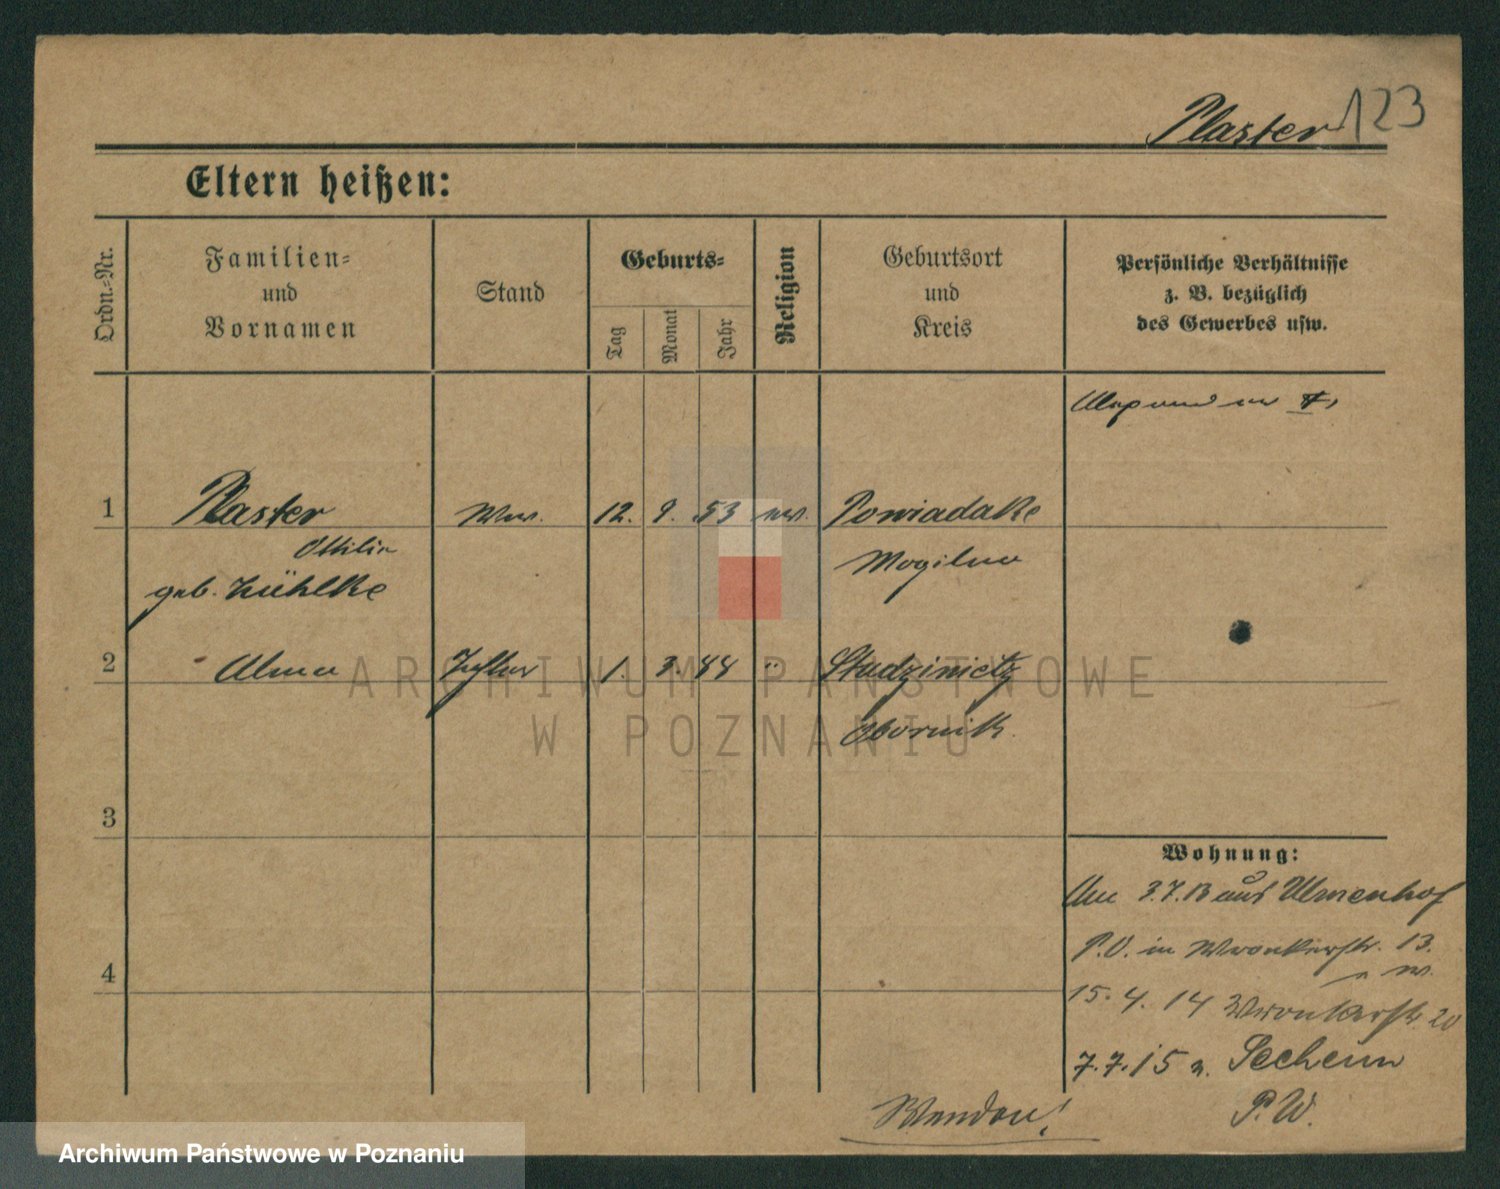 Plaster 123
Eltern heißen:
Ordn.=Nr.
Familien=
und
Vornamen
Stand
Geburts=
Tag
Monat
Jahr
Religion
Geburtsort
und
Kreis
Persönliche Verhältnisse
z. B. bezüglich
des Gewerbes usw.
1 Plaster Ww. 12. 9. 53 ev. Powiadake
Ottilie Mogilno
geb. Lühlke
2 Alma 1. 3. 44 " Studzinietz
Obornik.
3
4
Wohnung:
Am 3.7.13 aus Ulmenhof
P.O. in Wronkerstr. 13.
15. 4. 14 Wronkerstr. 20
7.7.15 n. Secheim
P.W.
Wenden!
ARCHIWUM PAŃSTWOWE
W POZNANIU
Archiwum Państwowe w Poznaniu